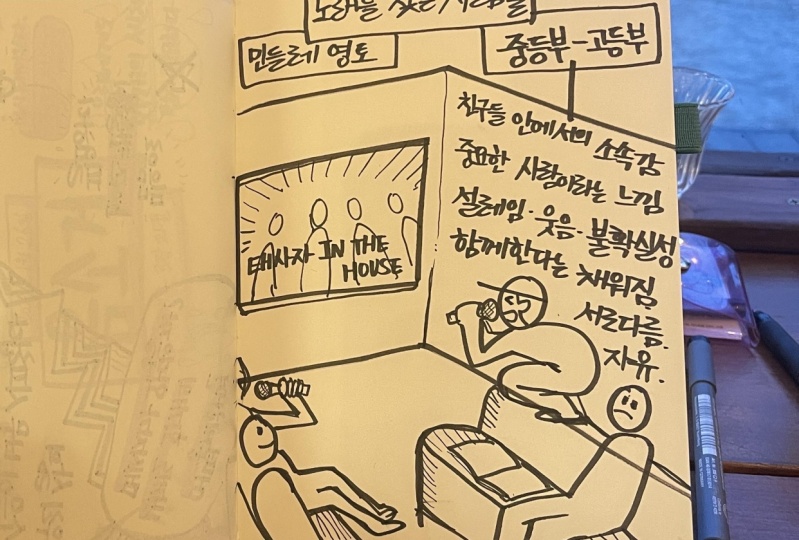 노래를
민들레 영토
중등부-고등부
친구들 안에서의 소속감
중요한 사람이라는 느낌
설레임·웃음·불확실성
함께한다는 채워짐
서로다름.
자유.
태사자 IN THE
HOUSE